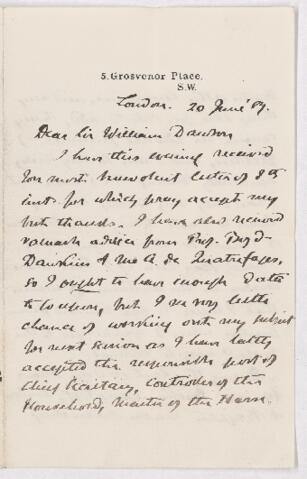 5. Grosvenor Place.
S.W.
London. 20 June 89.
Dear Sir William Dawson
I have this evening received
your most benevolent letter of 8th
inst. for which pray accept my
best thanks. I have also received
valuable advice from Prof. Boyd-
Dawkins & M. A. de Quatrefages,
so I ought to have enough data
to go upon, but I see very little
chance of working out my subject
for next session as I have lately
accepted the responsible post of
chief Secretary, Controller of the
Household, Master of the Horse